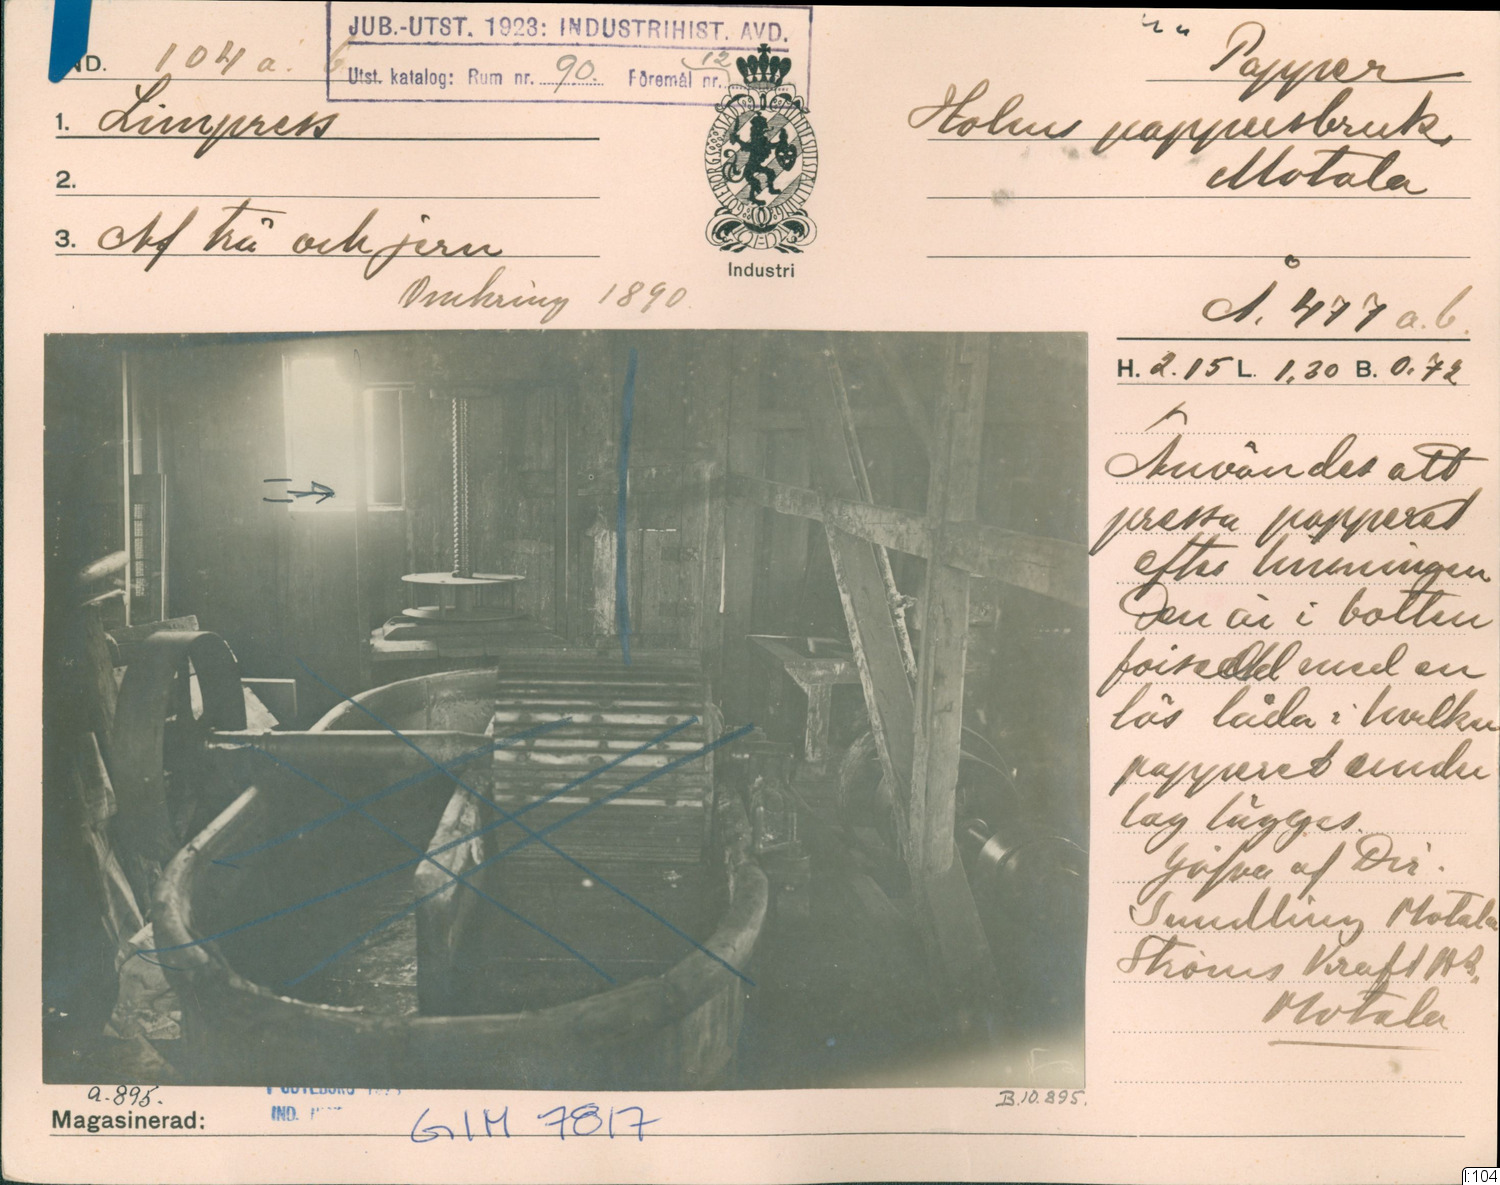 JUB.-UTST. 1923: INDUSTRIHIST. AVD.
Utst. katalog: Rum nr. 90. Föremål nr. 12
IND. 104 a. b
1. Limpress
2.
3. Af trä och jern
Omkring 1890.
GÖTEBORGS STADS
Industri
Papper
Holms pappersbruk.
Motala
Å. 477 a.b.
H. 2.15 L. 1.30 B. 0.72
Användes att
pressa papperet
efter limningen
Den är i botten
försedd med en
lös låda i hvilken
papperet under
lag lägges.
Gåfva af Dir.
Sundling Motala
Ströms Kraft AB.
Motala
a.895.
B.10.895.
GÖTEBORG
IND.
Magasinerad:
GIM 7817
I:104